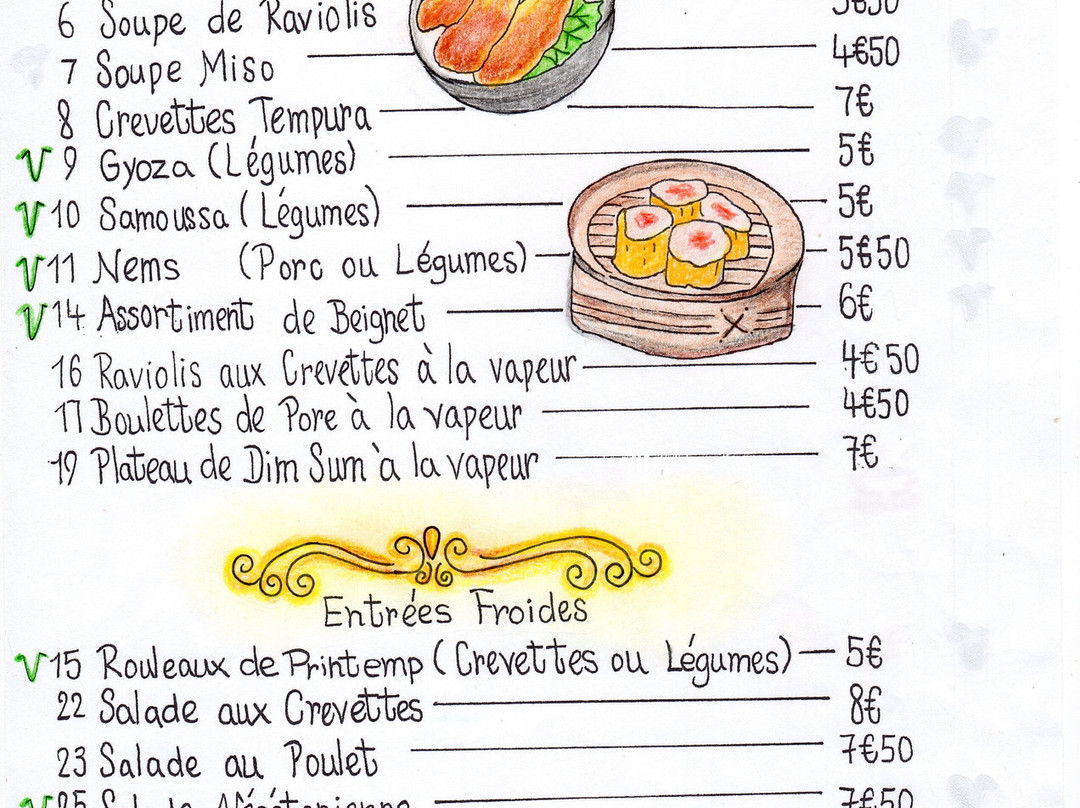 6 Soupe de Raviolis 5€50
7 Soupe Miso 4€50
8 Crevettes Tempura 7€
V 9 Gyoza (Légumes) 5€
V 10 Samoussa (Légumes) 5€
V 11 Nems (Porc ou Légumes) 5€50
V 14 Assortiment de Beignet 6€
16 Raviolis aux Crevettes à la vapeur 4€50
17 Boulettes de Porc à la vapeur 4€50
19 Plateau de Dim Sum à la vapeur 7€
Entrées Froides
V 15 Rouleaux de Printemp (Crevettes ou Légumes) 5€
22 Salade aux Crevettes 8€
23 Salade au Poulet 7€50
V 25 Salade Végétarienne 7€50